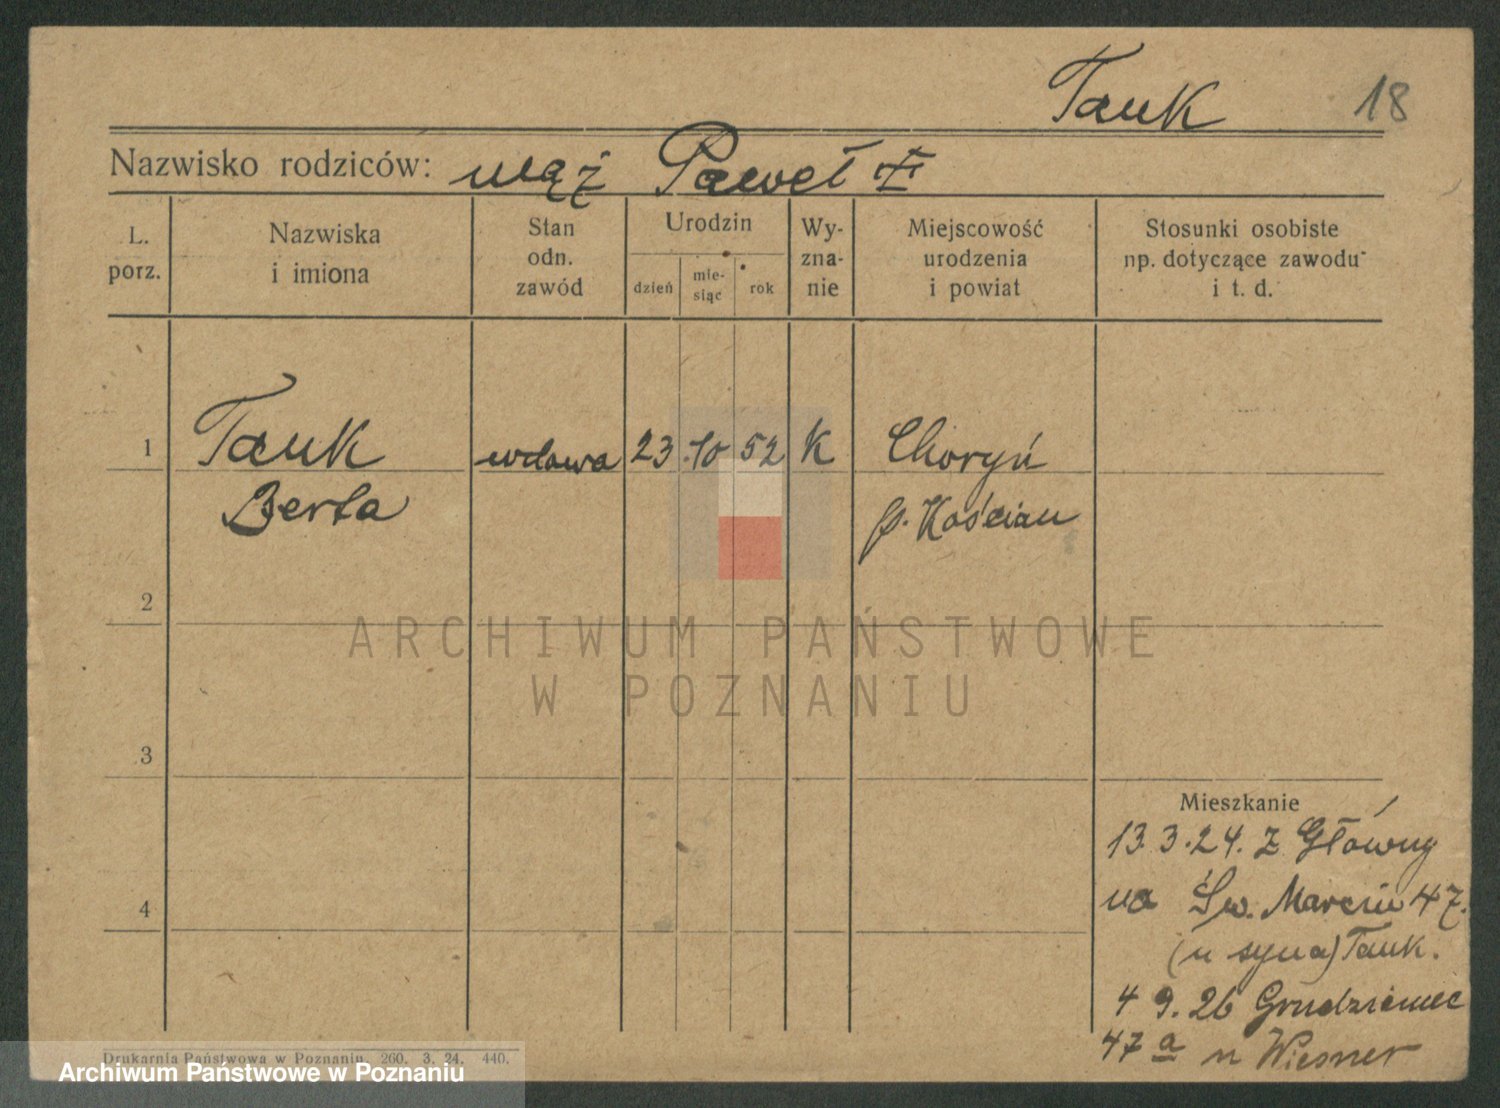 Tauk 18
Nazwisko rodziców: mąż Paweł
L. porz.
Nazwiska i imiona
Stan odn. zawód
Urodzin
dzień
mie-siąc
rok
Wy-zna-nie
Miejscowość urodzenia i powiat
Stosunki osobiste np. dotyczące zawodu i t. d.
1 Tauk wdowa 23 10 52 K Choryń
Berta p. Kościan
2
ARCHIWUM PAŃSTWOWE
W POZNANIU
3
Mieszkanie
13.3.24. z Główny
4
na Św. Marcin 47.
(u syna) Tauk.
4 9. 26 Grudzieniec
47a u Wiesner
Drukarnia Państwowa w Poznaniu. 260. 3. 24. 440.
Archiwum Państwowe w Poznaniu